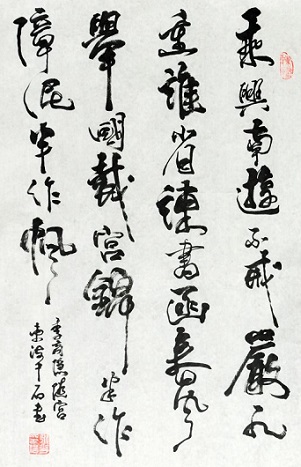 乘興南遊不戒嚴九
重誰省諫書函春風
舉國裁宮錦半作
障泥半作帆
李商隱隋宮
東海石書